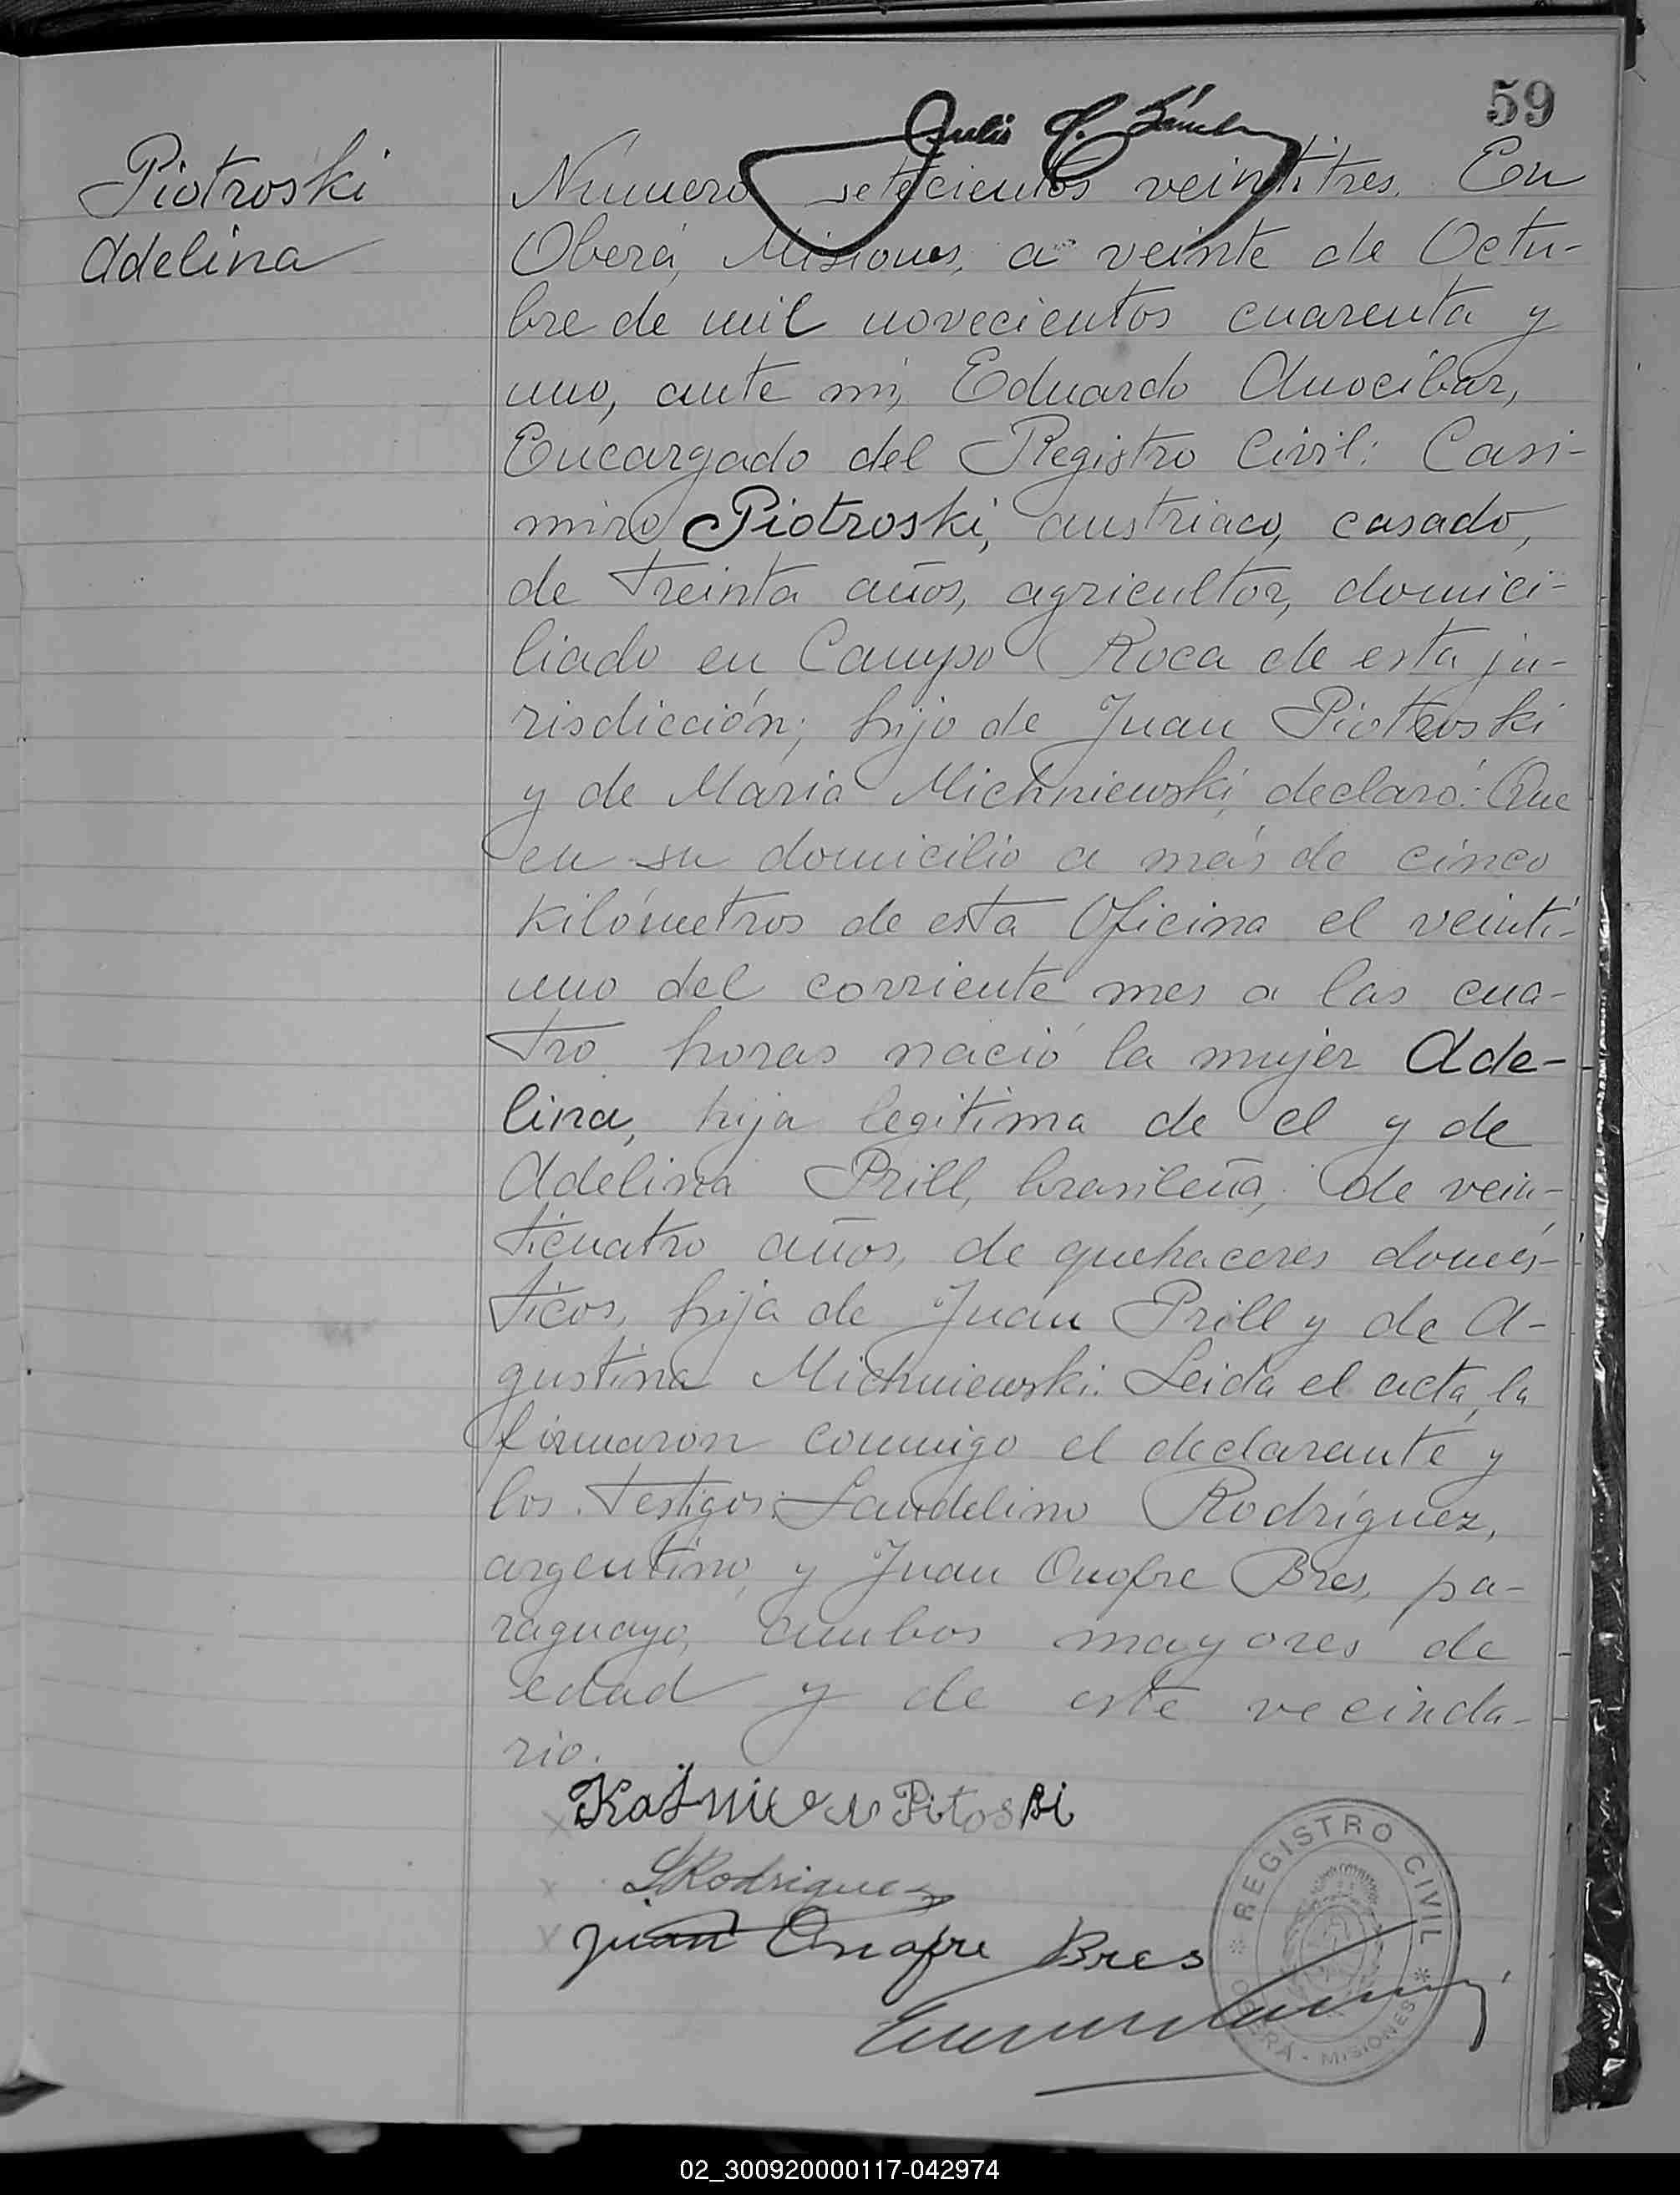 59
Piotroski
Adelina
Numero setecientos veintitres. En
Oberá, Misiones, a veinte de Octu-
bre de mil novecientos cuarenta y
uno, ante mi, Eduardo Anocibar,
Encargado del Registro Civil: Casi-
miro Piotroski, austriaco, casado,
de treinta años, agricultor, domici-
liado en Campo Roca de esta ju-
risdicción; hijo de Juan Piotroski
y de Maria Michniewski, declaró: Que
en su domicilio a más de cinco
kilómetros de esta Oficina el veinti-
uno del corriente mes a las cua-
tro horas nació la mujer Ade-
lina, hija legitima de el y de
Adelina Prill, brasileña, de vein-
ticuatro años, de quehaceres domés-
ticos, hija de Juan Prill y de A-
gustina Michniewski. Leida el acta, la
firmaron conmigo el declarante y
los testigos: Laudelino Rodríguez,
argentino, y Juan Onofre Bres, pa-
raguayo, ambos mayores de
edad y de este vecinda-
rio.
Pitoski
LRodriguez
Juan Onofre Bres
REGISTRO CIVIL
OBERÁ - MISIONES
02_300920000117-042974